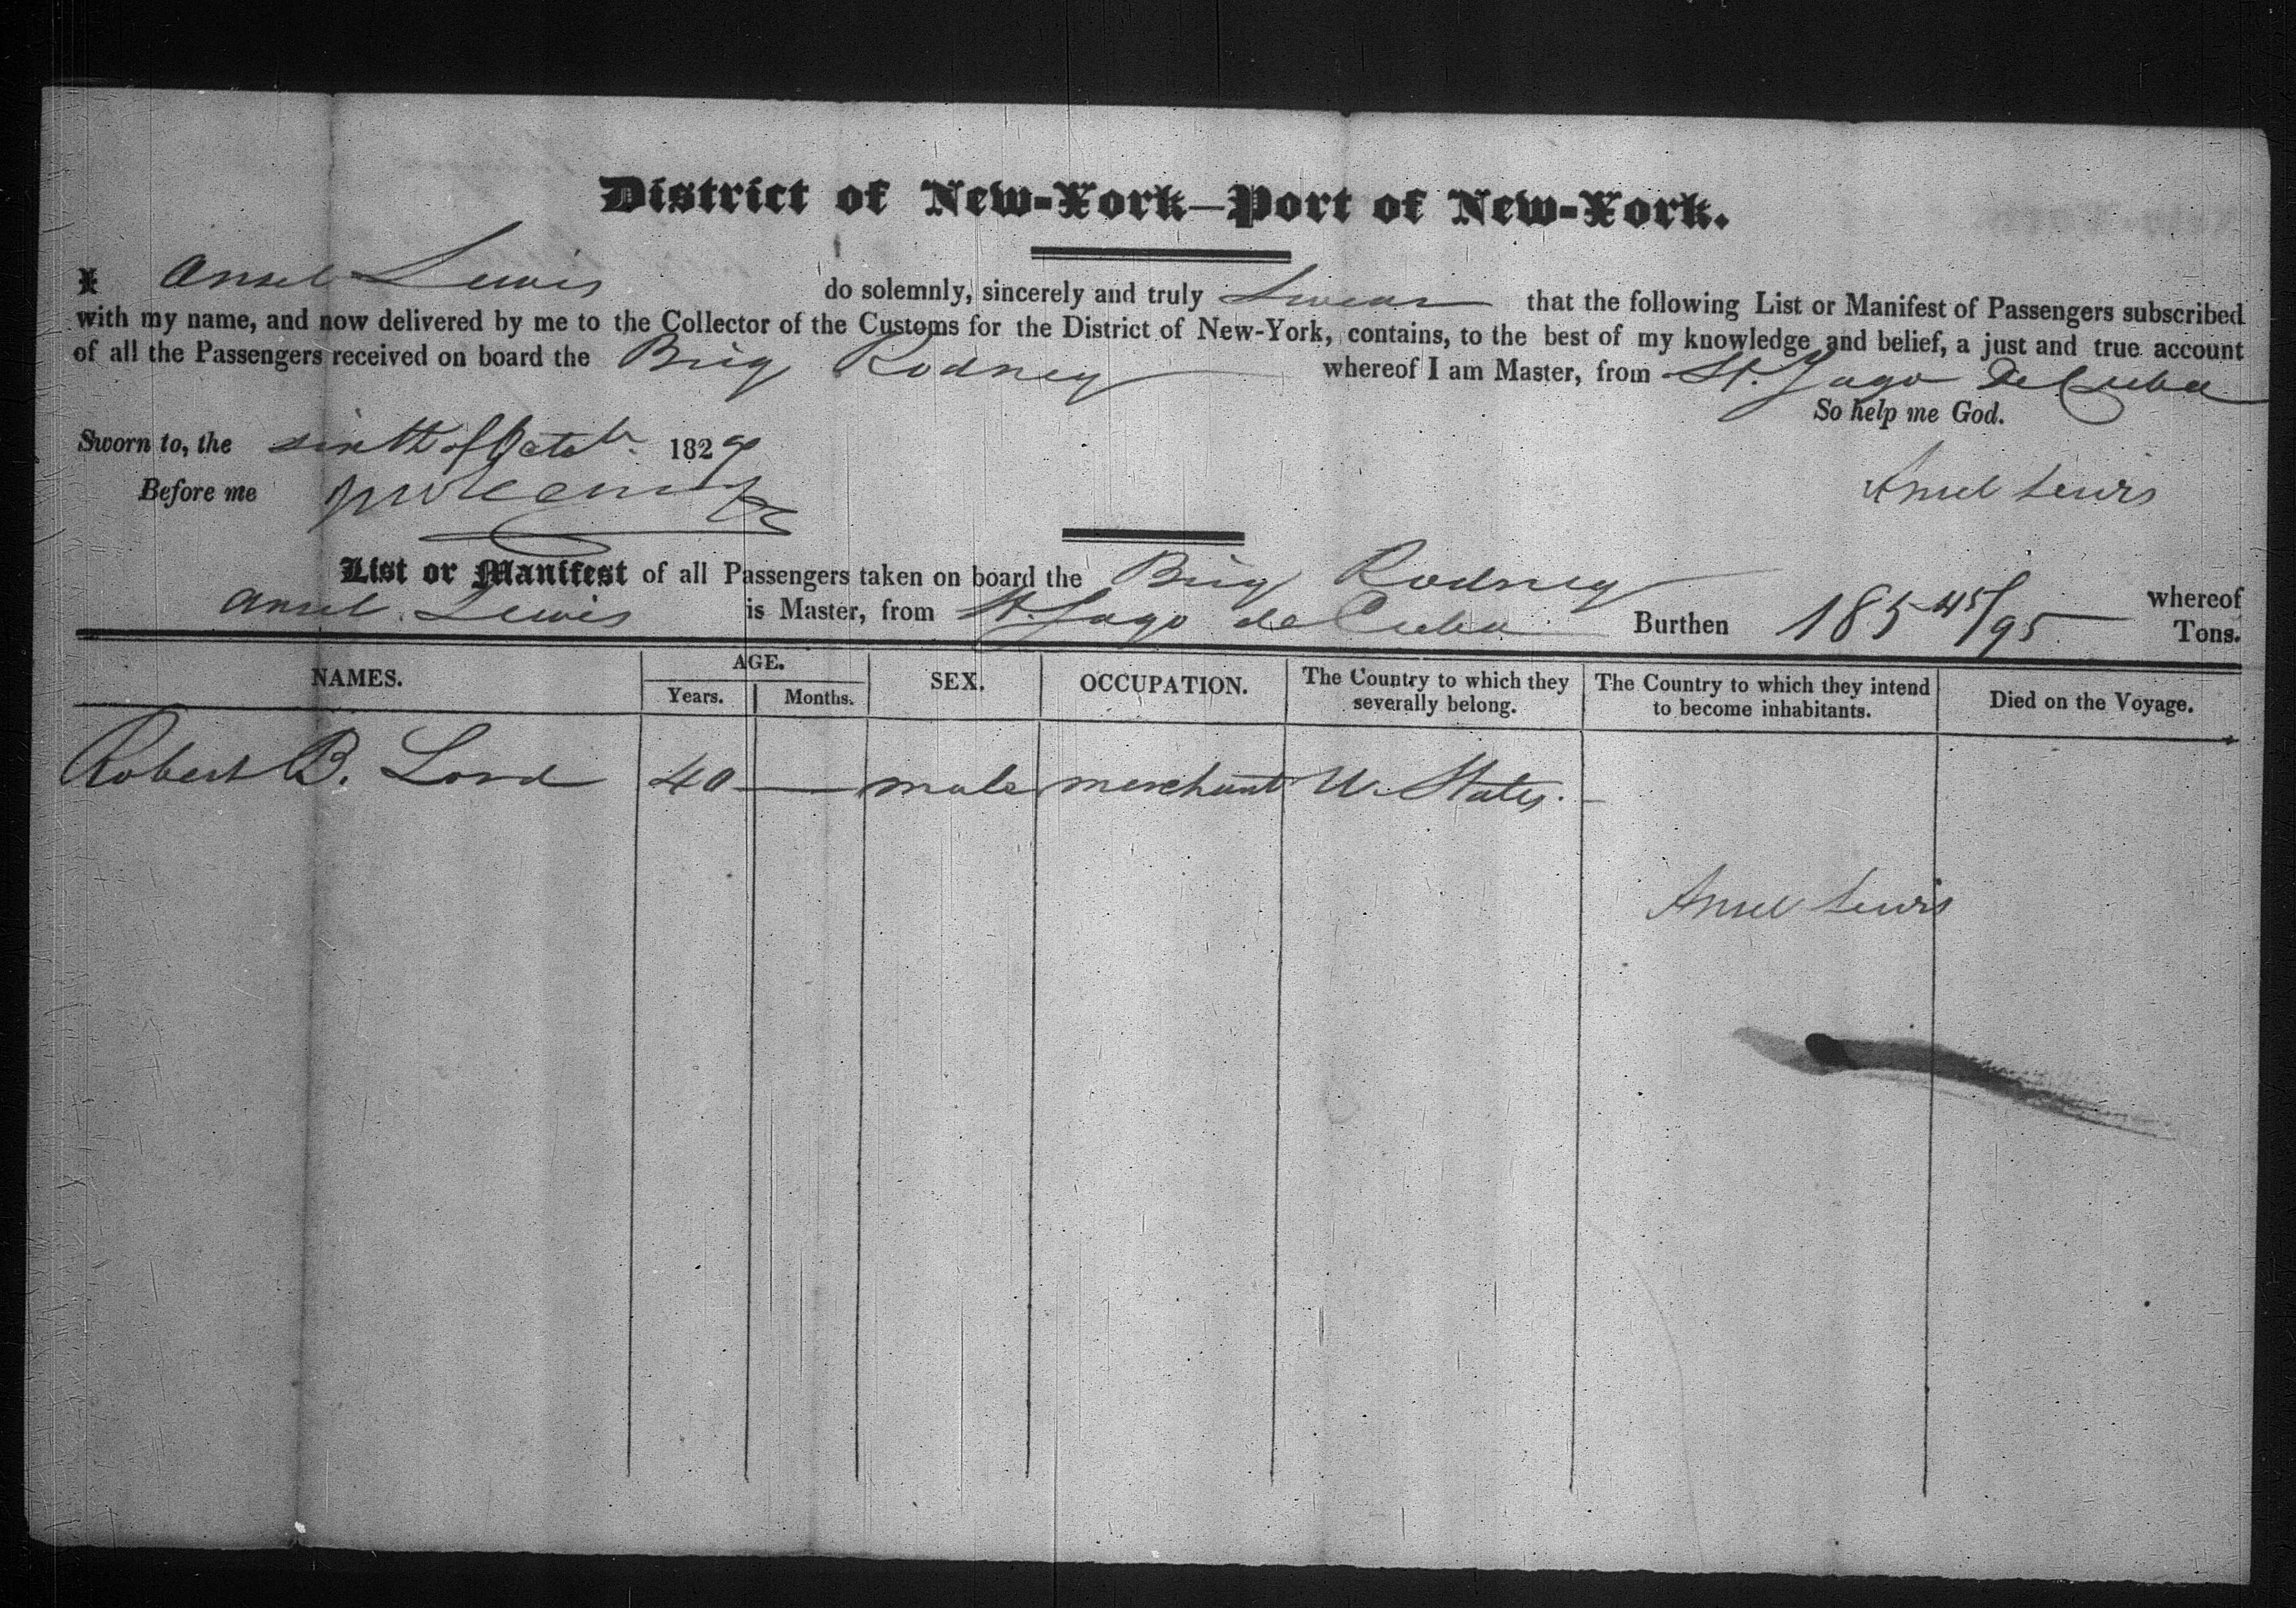 District of New-York—Port of New-York.
I Ansel Lewis do solemnly, sincerely and truly Swear that the following List or Manifest of Passengers subscribed
with my name, and now delivered by me to the Collector of the Customs for the District of New-York, contains, to the best of my knowledge and belief, a just and true account
of all the Passengers received on board the Brig Rodney whereof I am Master, from St. Jago De Cuba
So help me God.
Sworn to, the sixth of Octobr 1829
Before me
Ansel Lewis
List or Manifest of all Passengers taken on board the Brig Rodney whereof
Ansel Lewis is Master, from St. Jago de Cuba Burthen 185 45/95 Tons.
NAMES. AGE. SEX. OCCUPATION. The Country to which they severally belong. The Country to which they intend to become inhabitants. Died on the Voyage.
Years. Months.
Robert B. Lord 40 — male merchant U. States. -
Ansel Lewis